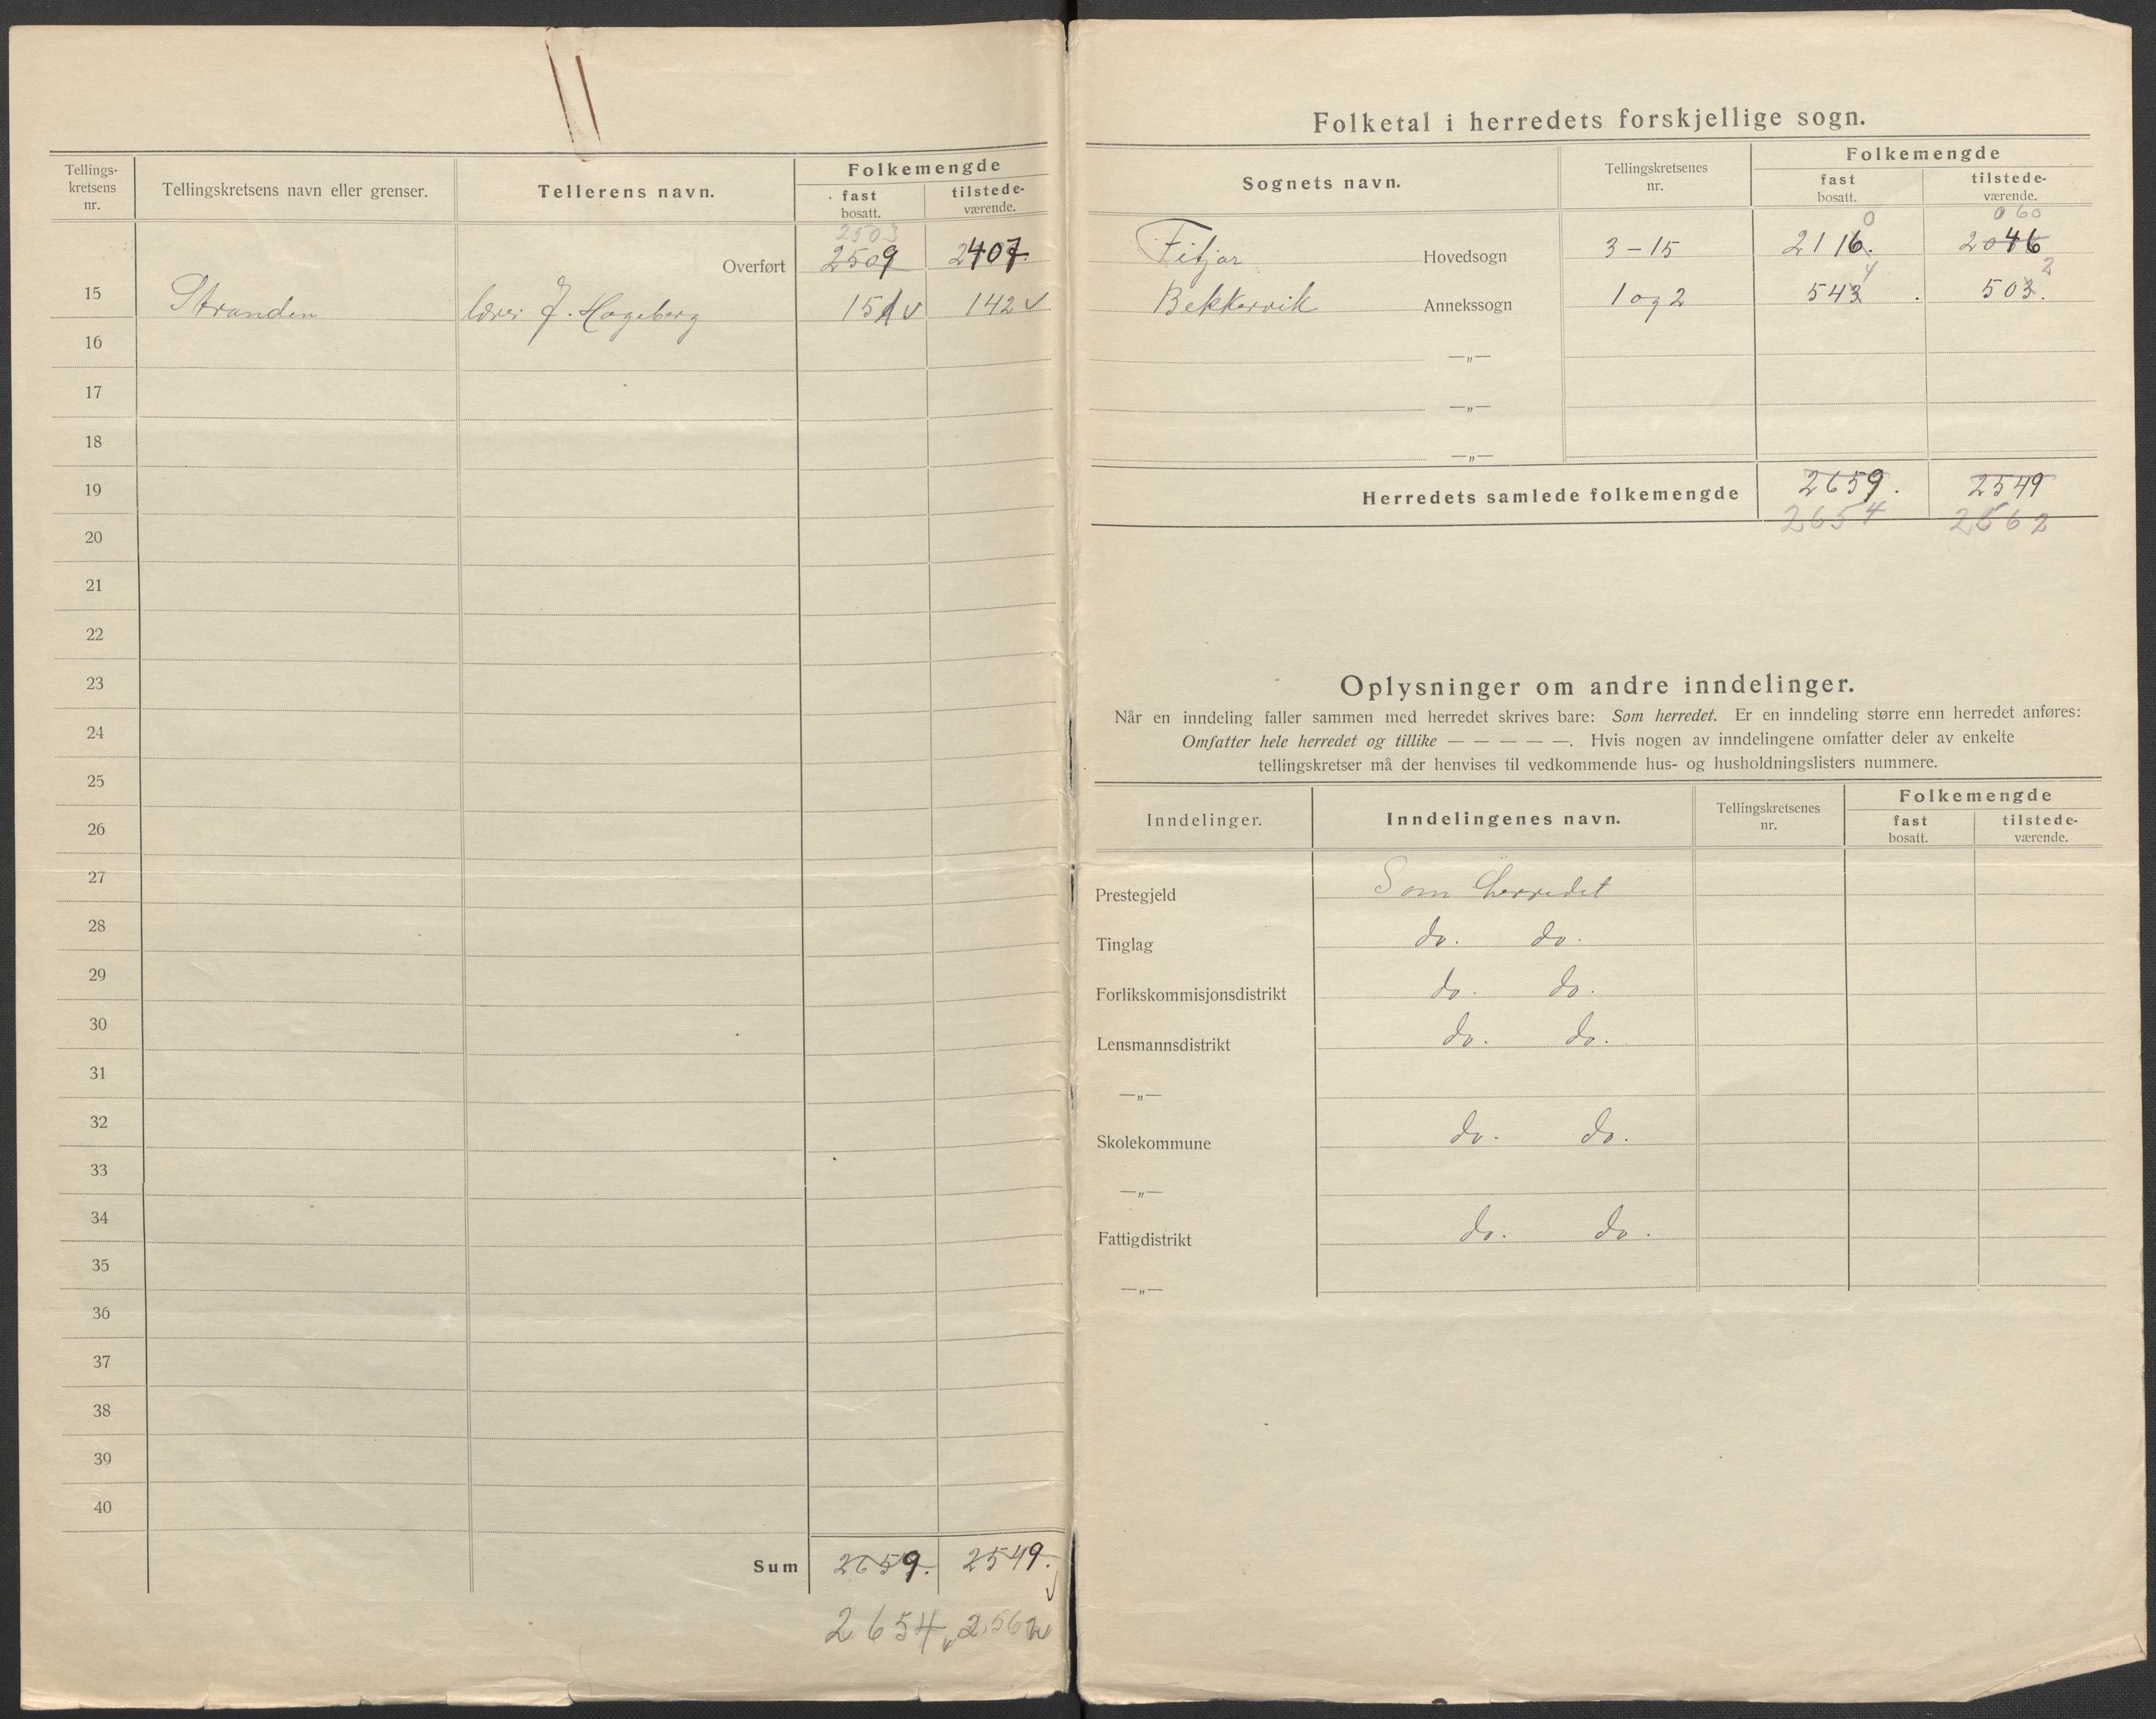 Tellings-
kretsens
nr.
Tellingskretsens navn eller grenser.
Tellerens navn.
Folkemengde
fast
bosatt.
tilstede-
værende.
2503
Overført 2509 2407.
15 Stranden lærer J. Hageberg 151 v 142 v
16
17
18
19
20
21
22
23
24
25
26
27
28
29
30
31
32
33
34
35
36
37
38
39
40
Sum 2659. 2549.
2654 2562
Folketal i herredets forskjellige sogn.
Sognets navn.
Tellingskretsenes
nr.
Folkemengde
fast
bosatt.
tilstede-
værende.
0 060
Fitjar Hovedsogn 3-15 2116. 2046
4 2
Bekkervik Annekssogn 1 og 2 543. 503.
—„—
—„—
—„—
Herredets samlede folkemengde 2659. 2549
2654 2562
Oplysninger om andre inndelinger.
Når en inndeling faller sammen med herredet skrives bare: Som herredet. Er en inndeling større enn herredet anføres:
Omfatter hele herredet og tillike — — — — —. Hvis nogen av inndelingene omfatter deler av enkelte
tellingskretser må der henvises til vedkommende hus- og husholdningslisters nummere.
Inndelinger.
Inndelingenes navn.
Tellingskretsenes
nr.
Folkemengde
fast
bosatt.
tilstede-
værende.
Prestegjeld Som herredet
Tinglag do. do.
Forlikskommisjonsdistrikt do. do.
Lensmannsdistrikt do. do.
—„—
Skolekommune do. do.
—„—
Fattigdistrikt do. do.
—„—